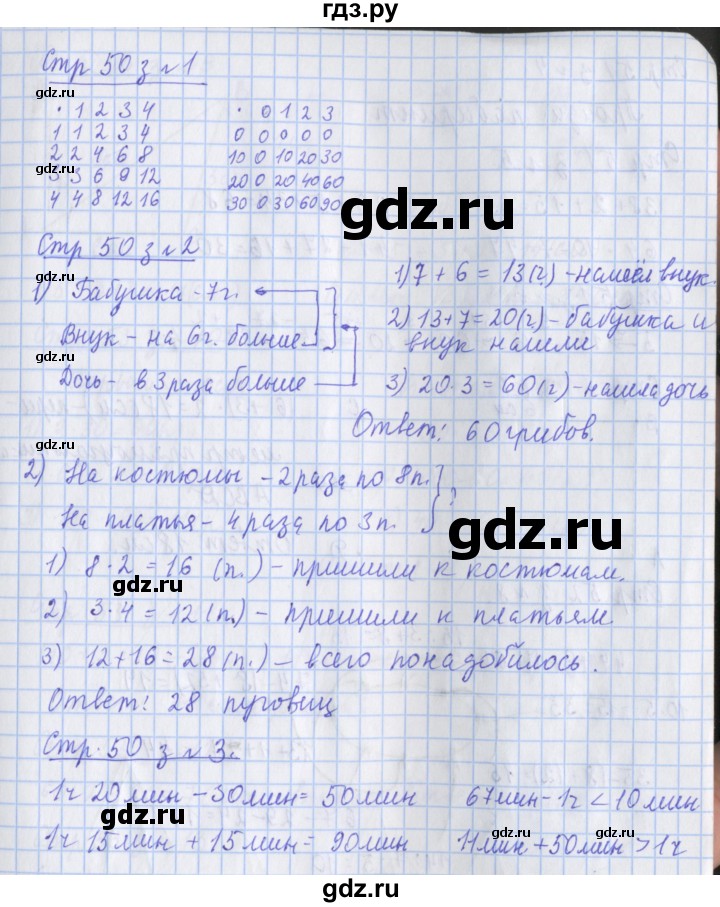 гдз.ру
Стр 50 з №1
gdz.ru
· 1 2 3 4
1 1 2 3 4
2 2 4 6 8
3 3 6 9 12
4 4 8 12 16
· 0 1 2 3
0 0 0 0 0
10 0 10 20 30
20 0 20 40 60
30 0 30 60 90
gdz.ru
gdz.ru
gdz.ru
gdz.ru
Стр 50 з №2
1) Бабушка - 7г.
Внук - на 6г. больше
Дочь - в 3 раза больше
gdz.ru
gdz.ru
1) 7 + 6 = 13(г) - нашёл внук.
2) 13+7=20(г) - бабушка и
внук нашли
3) 20·3 = 60(г) - нашла дочь
gdz.ru
Ответ: 60 грибов.
gdz.ru
2) На костюмы - 2 раза по 8п.
На платья - 4 раза по 3п. ?
gdz.ru
1) 8·2 = 16 (п.) - пришили к костюмам.
gdz.ru
2) 3·4 = 12 (п.) - пришили к платьям
gdz.ru
3) 12+16=28 (п.) - всего понадобилось.
Ответ: 28 пуговиц
gdz.ru
Стр. 50 з №3.
1ч 20мин - 30мин = 50мин
67мин - 1ч < 10мин
gdz.ru
gdz.ru
1ч 15мин + 15мин = 90мин
11мин + 50мин > 1ч
gdz.ru
gdz.ru